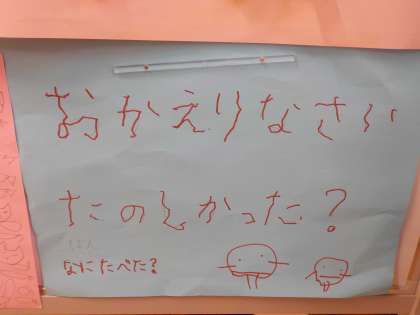 おかえりなさい
たのしかった?
なにたべた?